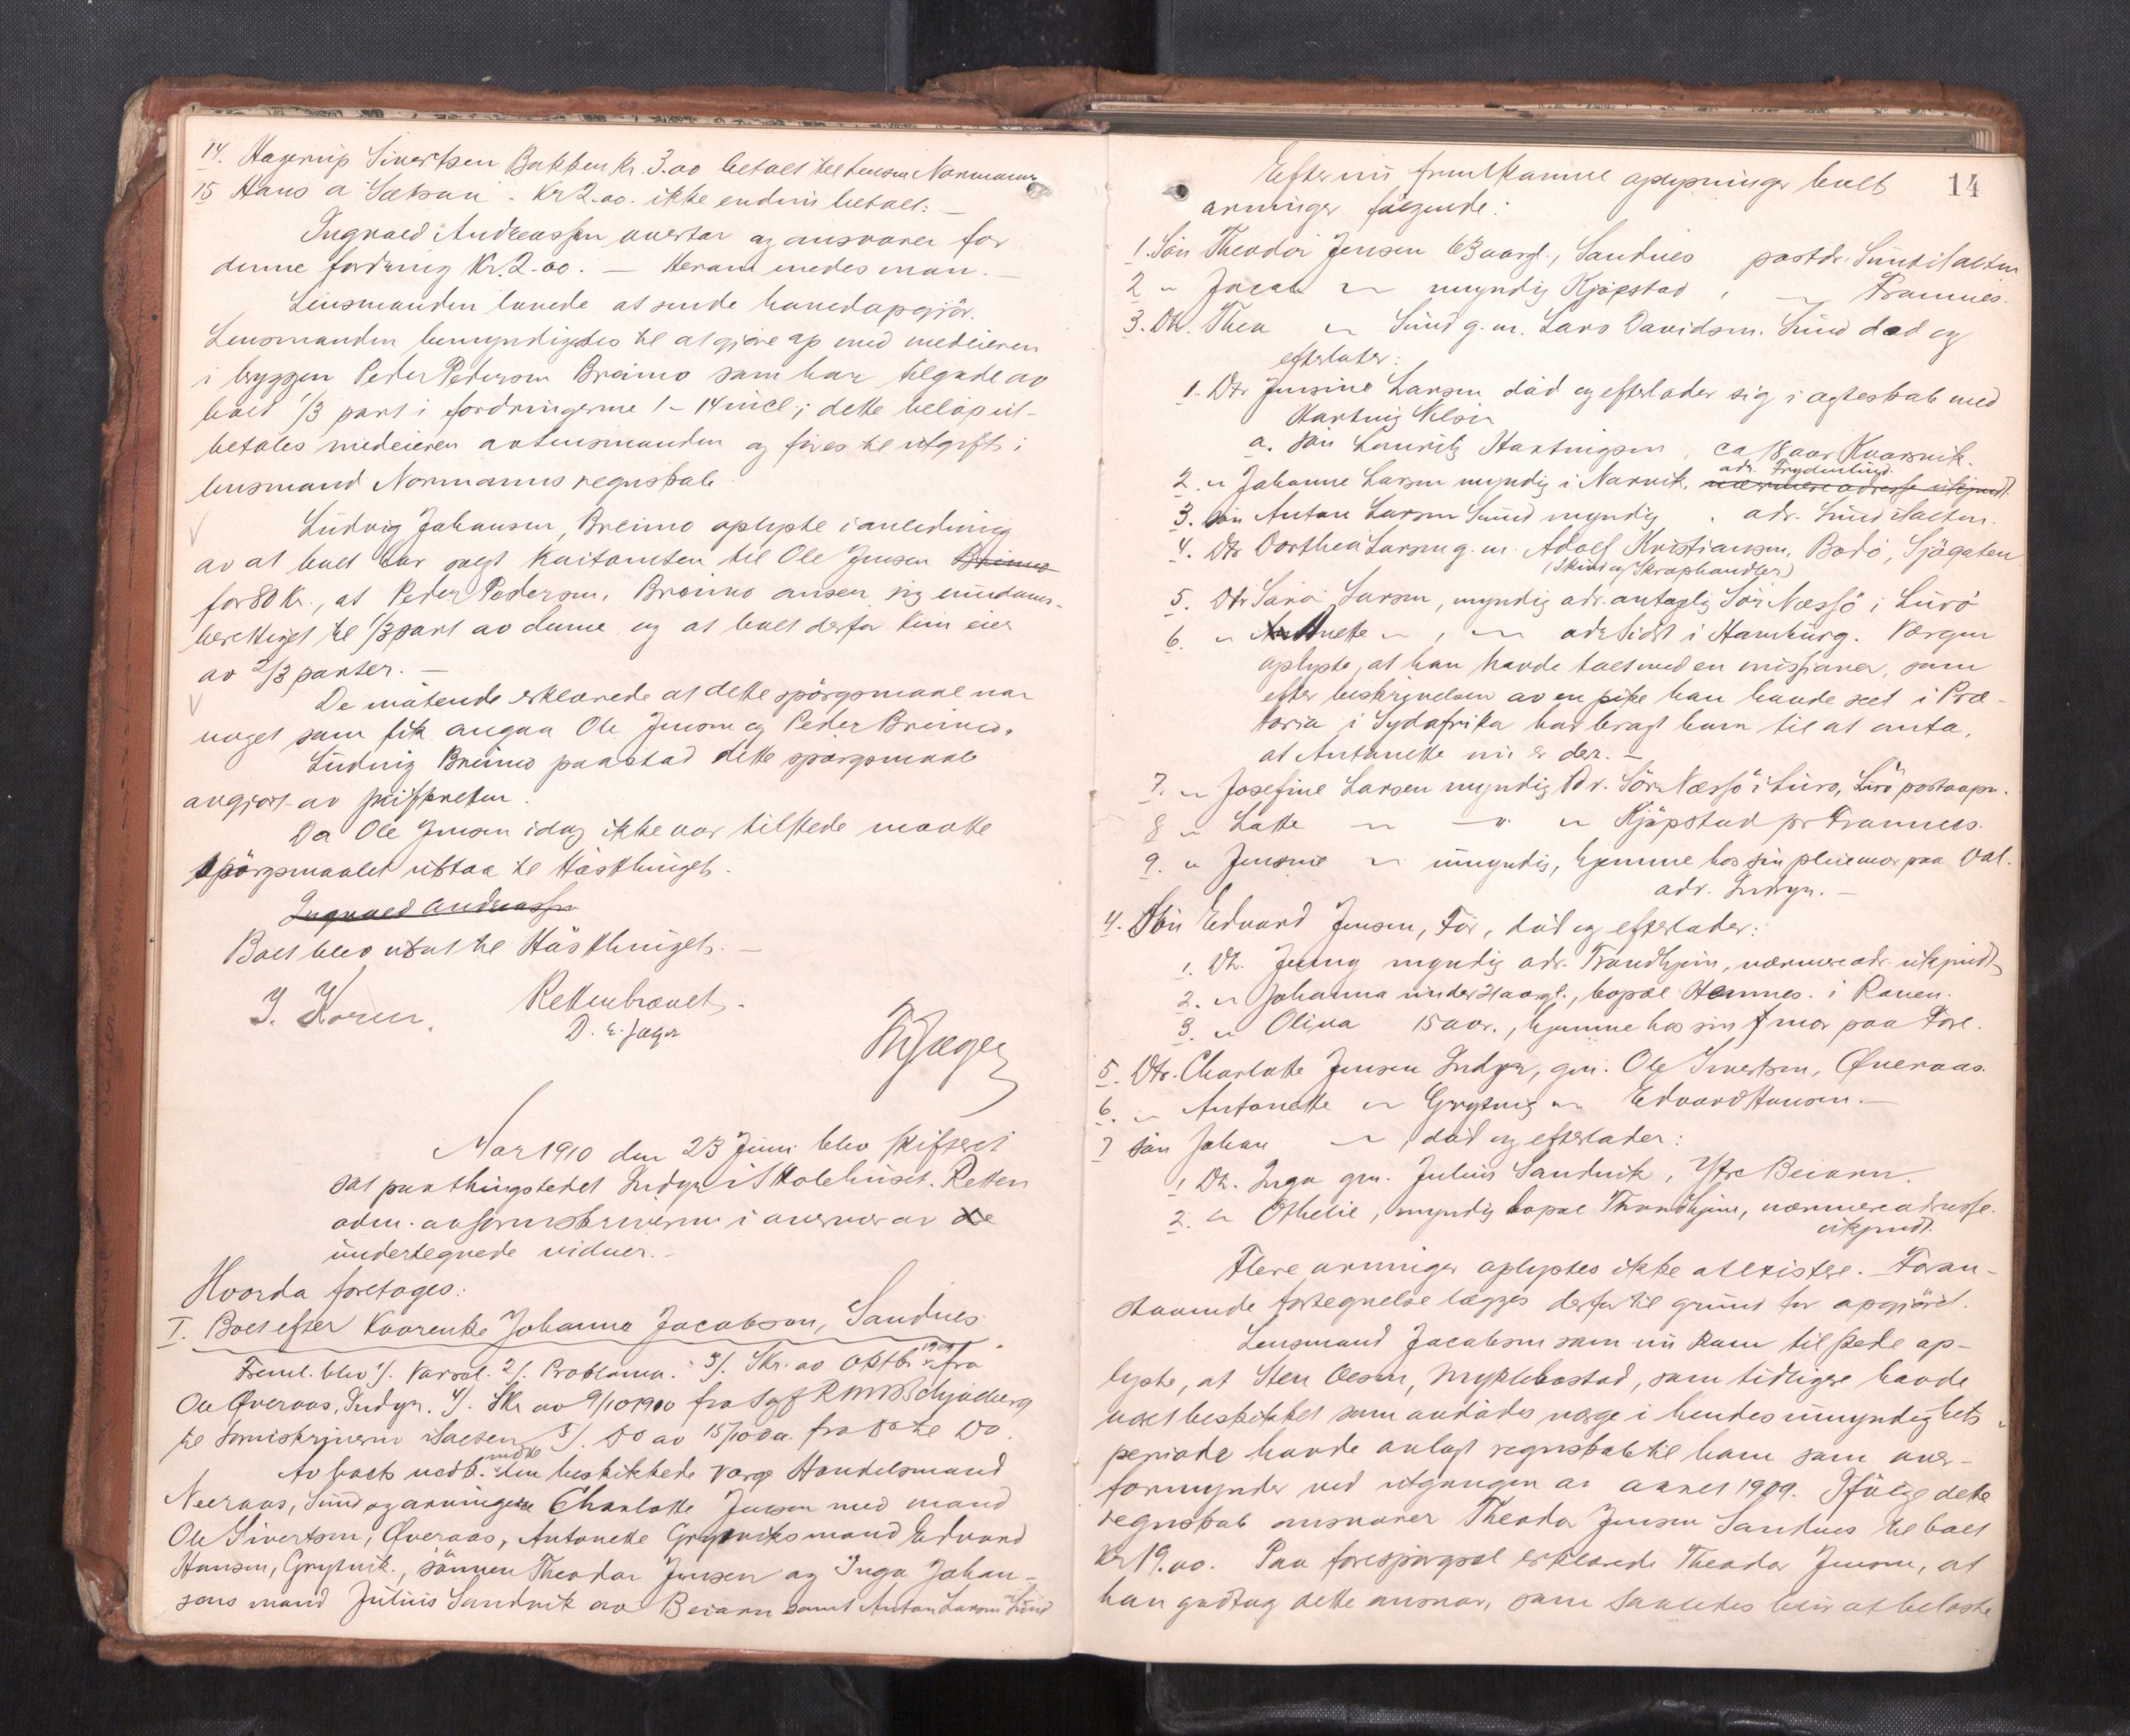 14. Hagerup Sivertsen Bakken Kr. 3.00 betalt til lensm Normann
15 Hans a Sætran. Kr 2.00. ikke endnu betalt: —
Ingvald Andreassen overtar og ansvarer for
denne fordring Kr. 2.00. — Herom enedes man. —
Lensmanden lovede at sende hovedopgjör.
Lensmanden bemyndigedes til at gjøre op med medeieren
i bryggen Peder Pedersen Breimo som har tilgode av
boet 1/3 part i fordringerne 1-14 incl.; dette beløp ut-
betales medeieren av lensmanden og føres til utgift i
lensmand Normanns regnskab.
Ludvig Johansen, Breimo oplyste i anledning
av at boet har solgt tomten til Ole Jensen Breimo
for 80 Kr., at Peder Pedersen, Breimo anser sig eiendoms-
berettiget til 1/3 part av denne og at boet derfor kun eier
av 2/3 parter. —
De møtende erklærede at dette spörgsmaal var
noget som fik angaa Ole Jensen og Peder Breimo.
Ludvig Breimo paastod dette spörgsmaal
avgjort av skifteretten.
Da Ole Jensen idag ikke var tilstede maatte
spörgsmaalet utstaa til Høstthinget.
Ingvald Andreassen
Boet blev utsat til Høstthinget. —
J. Koren.
Retten hævet.
D. E. Jæger
Jæger
Aar 1910 den 23 Juni blev skifteret
sat paa thingstedet Indyr i Skolehuset. Retten
adm. av sorenskriveren i overvær av de
undertegnede vidner. —
Hvorda foretoges:
I. Boet efter Johanna Jacobsen, Sandnes
Freml. blev 1/. Varsel. 2/. Proklama. 3/. Skr. av Oktbr 1909 fra
Ole Øveraas, Indyr. 4/. Skr av 9/10 1900 fra
til sorenskriveren i Salten 5/. Do av 15/10 d.a. fra Do til Do.
Av boets vedk. mødte den beskikkede værge Handelsmand
Neeraas, Sund og arvingerne Charlotte Jensen med mand
Ole Sivertsen, Øveraas, Antonette Grytviks mand Edvard
Hansen, Grytvik., sönnen Theodor Jensen og Inga Johan-
sens mand Julius Sandvik av Beiarn samt Anton Larsen Sund
14
Efter nu fremkomne oplysninger boets
arvinger følgende:
1. Sön Theodor Jensen 63 aarg., Sandnes postadr. Sund i Salten
2 " Jacob " myndig Kjöpstad, " Tramnes.
3. Dtr. Thea " Sund g. m. Lars Davidsen. Sund død og
efterlater:
1. Dtr Jensine Larsen død og efterlader sig i egteskab med
Hartvig Nilsen
a. Sön Lauritz Hartvigsen, ca 18 aar Kvarsvik.
adr. Frydenlund.
2. " Johanne Larsen myndig i Narvik. nærmere adresse ukjendt.
3. Sön Anton Larsen Sund myndig. adr. Sund i Salten.
4. Dtr Dorthea Larsen g. m. Adolf Kristiansen, Bodö, Sjögaten
(Skind og Skraphandler)
5. Dtr Sara Larsen, myndig adr. antagelig Sör Næsö i Lurö
6. " Antonette ", " adr. sidst i Hamburg. Værgen
oplyste, at han havde talt med en misjonær, som
efter beskrivelsen av en pike han havde seet i Præ-
toria i Sydafrika har bragt ham til at anta,
at Antonette nu er der. —
7. " Josefine Larsen myndig Adr. Sör Næsö i Lurö, Lurö postaapn.
8 " Lotte " " " Kjöpstad pr Tramnes.
9. " Jensine " umyndig, hjemme hos sin pleiemor paa Dal.
adr. Indyr. —
4. Sön Edvard Jensen, För, död og efterlader:
1. Dtr. Jenny myndig adr. Trondhjem, nærmere adr. ukjendt
2. " Johanna under 21 aarg., bopæl Hemnes. i Ranen.
3. " Oliva 15 aar., hjemme hos sin mor paa Fore.
5. Dtr. Charlotte Jensen Indyr, gm. Ole Sivertsen, Øveraas.
6. " Antonette " Grytvig " Edvard Hansen. —
7 Sön Johan " död og efterlader:
1 Dtr. Inga gm. Julius Sandvik, Ytre Beiarn.
2. " Othelie, myndig bopæl Trondhjem, nærmere adresse
ukjendt.
Flere arvinger oplystes ikke at existere. — Foran-
staaende fortegnelse lægges derfor til grund for opgjöret.
Lensmand Jacobsen som nu kom tilstede op-
lyste, at Sten Olsen, Myklebostad, som tidligere havde
været beskikket som avdødes værge i hendes umyndighets
periode havde avlagt regnskab til ham som over-
formynder ved utgangen av aaret 1909. Ifölge dette
regnskab ansvarer Theodor Jensen Sandnes til boet
Kr 19.00. Paa forespörgsel erklærede Theodor Jensen, at
han godtog dette ansvar, som saaledes blir at belaste